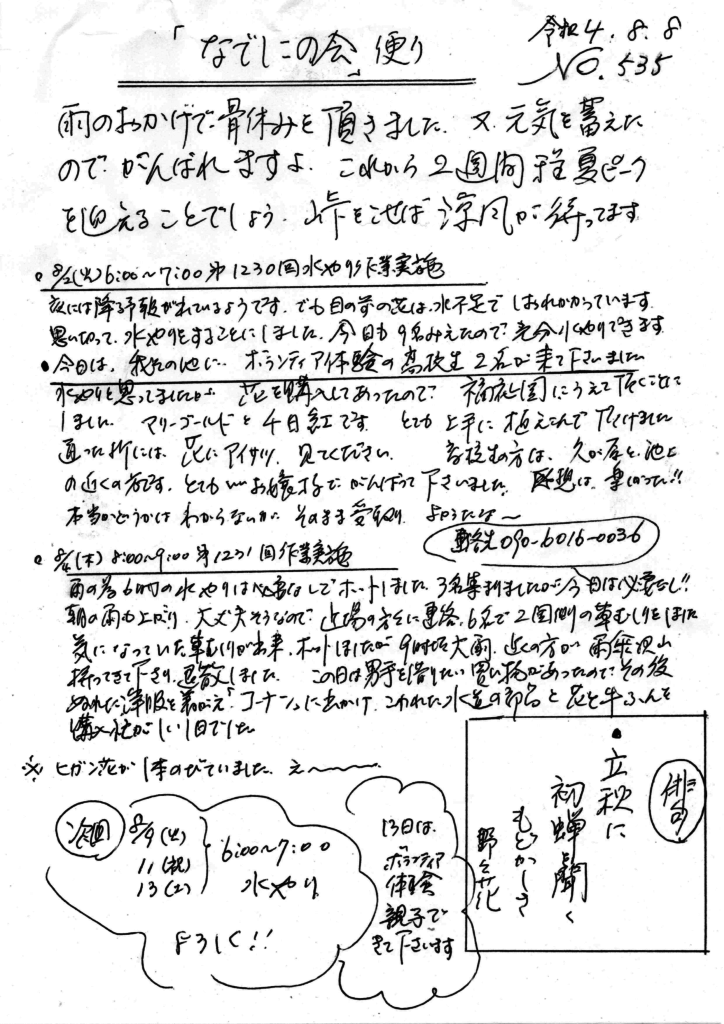 令和4.8.8
「なでしこの会」便り
NO.535
雨のおかげで骨休みを頂きました。又元気を蓄えた
のでがんばれますよ。これから2週間程夏ピーク
を迎えることでしょう。峠をこせば涼風が待ってます
○8/2(火)6:00〜7:00第1230回水やり作業実施
夜には降る予報がでているようです。でも目の前の花は、水不足でしおれかかっています。
思い切って、水やりをすることにしました。今日も9名みえたので充分水やりできます
●今日は、我々の他に、ボランティア体験の高校生2名が来て下さいました
水やりと思ってましたが、花を購入してあったので、福祉園にうえて頂くことに
しました。マリーゴールドと千日紅です。とても上手に植えこんで下さいました
通った折には、花にアイサツ、見てください。高校生の方は、久が原と池上
の近くの方です。とてもいいお嬢様でがんばって下さいました。感想は、楽しかった!!
本当かどうかはわからないが、そのまま受取り、よかったな〜
連絡先090-6016-0036
○8/4(木)8:00〜9:00第1231回作業実施
雨の為6時の水やりは必要なしでホットしました。3名集まりましたが今日は必要なし!!
朝の雨も上がり、大丈夫そうなので、近場の方々に連絡、6名で2園側の草むしりをしました
気になっていた草むしりが出来、ホットしましたが9時頃大雨、近くの方が雨傘沢山
持ってきて下さり、退散しました。この日は男手を借りたい買い物があったので、その後
ぬれた洋服を着がえ「コーナン」に出かけ、こわれた水道の部品と花と牛ふんを
購入 忙がしい1日でした
※ヒガン花が1本のびていました。え〜
次回 8/9(火)
11(祝)
13(土)
6:00〜7:00
水やり
よろしく!!
13日は、
ボランティア
体験
親子で
きて下さいます
俳句
●立秋に
初蝉を聞く
もどかしさ
野の花